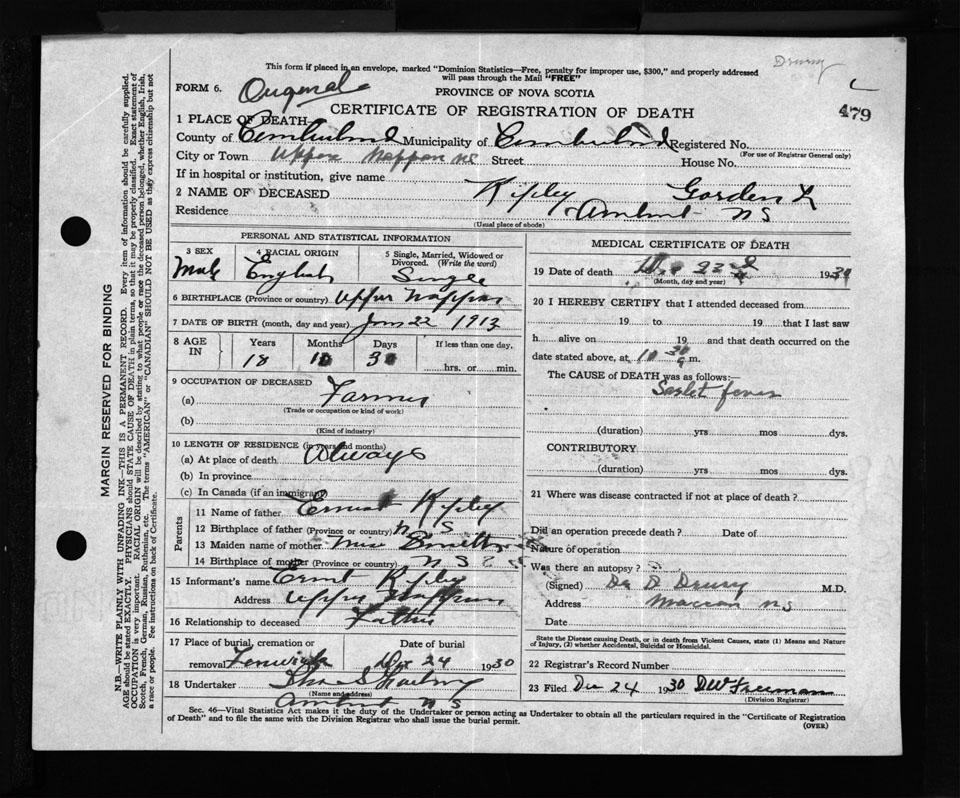 Drury
This form if placed in an envelope, marked "Dominion Statistics—Free, penalty for improper use, $300," and properly addressed
will pass through the Mail "FREE"
FORM 6. Original PROVINCE OF NOVA SCOTIA
CERTIFICATE OF REGISTRATION OF DEATH
479
1 PLACE OF DEATH
County of Cumberland Municipality of Cumberland Registered No.
(For use of Registrar General only)
City or Town Upper Nappan NS Street House No.
If in hospital or institution, give name
2 NAME OF DECEASED Ripley Gordon L
Residence Amherst NS
(Usual place of abode)
PERSONAL AND STATISTICAL INFORMATION
3 SEX 4 RACIAL ORIGIN 5 Single, Married, Widowed or
Divorced. (Write the word)
Male English Single
6 BIRTHPLACE (Province or country) Upper Nappan
7 DATE OF BIRTH (month, day and year) Jan 22 1913
8 AGE IN Years Months Days If less than one day,
18 hrs. or min.
9 OCCUPATION OF DECEASED
(a) Farmer
(Trade or occupation or kind of work)
(b)
(Kind of industry)
10 LENGTH OF RESIDENCE (in years and months)
(a) At place of death Always
(b) In province
(c) In Canada (if an immigrant)
Parents
11 Name of father Ernest Ripley
12 Birthplace of father (Province or country) N S
13 Maiden name of mother Smith
14 Birthplace of mother (Province or country) N S
15 Informant's name Ernest Ripley
Address Upper Nappan
16 Relationship to deceased Father
17 Place of burial, cremation or Date of burial
removal Fenwick Dec 24 1930
18 Undertaker
(Name and address)
Amherst N S
MEDICAL CERTIFICATE OF DEATH
19 Date of death 1930
(Month, day and year)
20 I HEREBY CERTIFY that I attended deceased from
19 to 19 that I last saw
h alive on 19 and that death occurred on the
date stated above, at 10 30 m.
The CAUSE OF DEATH was as follows:—
Sarlet fever
(duration) yrs mos dys.
CONTRIBUTORY
(duration) yrs mos dys.
21 Where was disease contracted if not at place of death?
Did an operation precede death? Date of
Nature of operation
Was there an autopsy?
(Signed) Dr D Drury M.D.
Address Maccan NS
Date
State the Disease causing Death, or in death from Violent Causes, state (1) Means and Nature
of Injury, (2) whether Accidental, Suicidal or Homicidal.
22 Registrar's Record Number
23 Filed Dec 24 1930 DW Freeman
(Division Registrar)
Sec. 46—Vital Statistics Act makes it the duty of the Undertaker or person acting as Undertaker to obtain all the particulars required in the "Certificate of Registration
of Death" and to file the same with the Division Registrar who shall issue the burial permit.
(OVER)
MARGIN RESERVED FOR BINDING
N.B.—WRITE PLAINLY WITH UNFADING INK—THIS IS A PERMANENT RECORD. Every item of information should be carefully supplied.
AGE should be stated EXACTLY. PHYSICIANS should STATE CAUSE OF DEATH in plain terms, so that it may be properly classified. Exact statement of
OCCUPATION is very important. RACIAL ORIGIN will be described by stating to what people or race the deceased person belonged, whether English, Irish,
Scotch, French, German, Russian, Ruthenian, etc. The terms "AMERICAN" or "CANADIAN" SHOULD NOT BE USED as they express citizenship but not
a race or people. See instructions on back of Certificate.